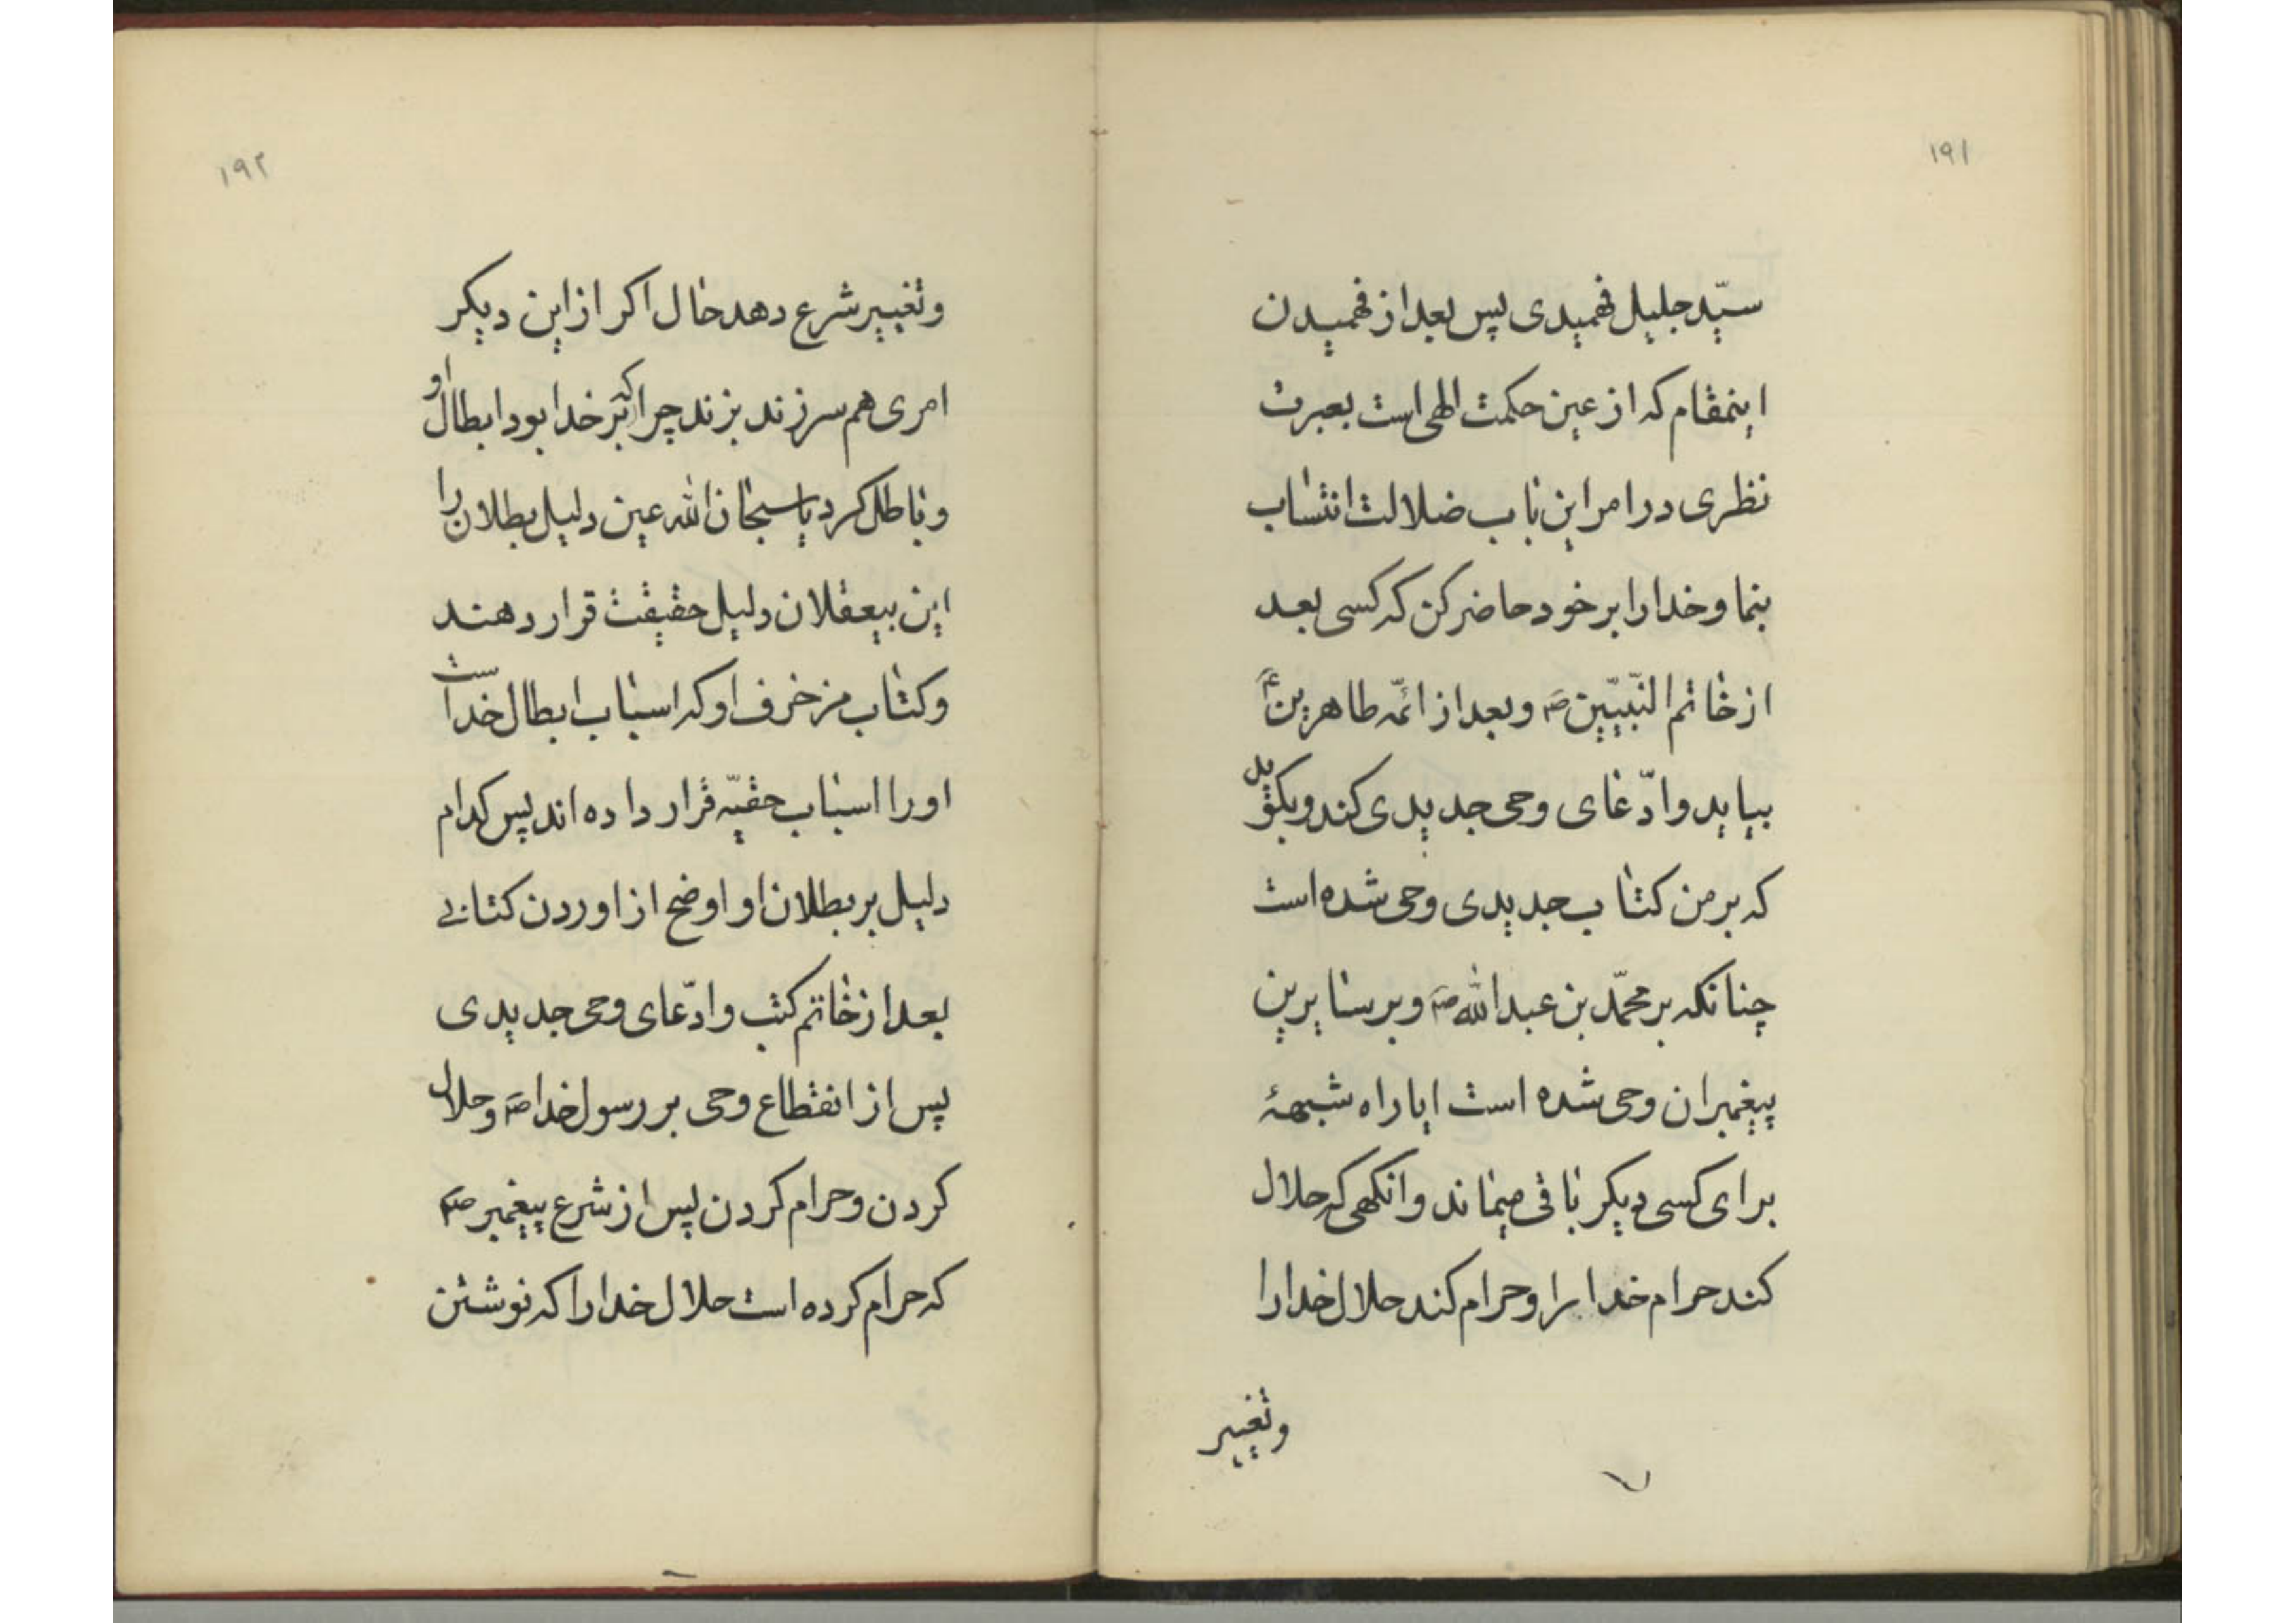 ۱۹۱
سیّد جلیل فهمیدی پس بعد از فهمیدن
اینمقام که از عین حکمت الهی است بعبرت
نظری در امر این باب ضلالت انتساب
بنما و خدا را بر خود حاضر کن که کسی بعد
از خاتم النّبیّین ص و بعد از ائمّه طاهرین ع
بیاید و ادّعای وحی جدیدی کند و بکوید
که بر من کتاب جدیدی وحی شده است
چنانکه بر محمّد بن عبدالله ص و بر سایرین
پیغمبران وحی شده است ایا راه شبههٔ
برای کسی دیکر باقی میماند وانکهی که حلال
کند حرام خدا را و حرام کند حلال خدا را
وتغییر
۱۹۲
وتغییر شرع دهد حال اکر از این دیکر
امری هم سر زند بزند چرا که بر خدا بود ابطال او
و باطل کرد یا سبحان الله عین دلیل بطلان را
این بیعقلان دلیل حقیقت قرار دهند
و کتاب مزخرف او که اسباب ابطال خداست
او را اسباب حقیّه قرار داده اند پس کدام
دلیل بر بطلان او اوضح از اوردن کتابی
بعد از خاتم کتب و ادّعای وحی جدیدی
پس از انقطاع وحی بر رسول خدا ص و حلال
کردن و حرام کردن پس از شرع پیغمبر ص
که حرام کرده است حلال خدا را که نوشتن